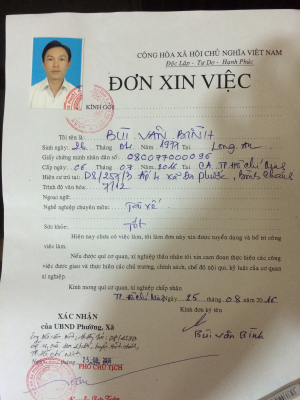 CỘNG HÒA XÃ HỘI CHỦ NGHĨA VIỆT NAM
Độc Lập - Tự Do - Hạnh Phúc
ĐƠN XIN VIỆC
KÍNH GỞI
Tôi tên là BÙI VĂN BÌNH
Sinh ngày 26 Tháng 04 Năm 1977 Tại Long An
Giấy chứng minh nhân dân số 080077000096
Cấp ngày 06 Tháng 07 Năm 2016 tại CA TP Hồ Chí Minh
Hiện cư trú tại D8/257/3 Ấp 4 xã Đa Phước, Bình Chánh
Trình độ văn hóa 7/12
Ngoại ngữ
Nghề nghiệp chuyên môn: Tài xế
Sức khỏe: Tốt
Hiện nay chưa có việc làm, tôi làm đơn này xin được tuyển dụng và bố trí công
việc làm.
Nếu được quí cơ quan, xí nghiệp thâu nhận tôi xin cam đoan thực hiện các công
việc được giao và thực hiện các chủ trương, chính sách, chế độ nội qui, kỷ luật của cơ quan
xí nghiệp.
Kính mong quí cơ quan, xí nghiệp chấp thuận.
ngày 25 tháng 08 năm 2016
Kính đơn ký tên
XÁC NHẬN
của UBND Phường, Xã
Bùi Văn Bình
PHÓ CHỦ TỊCH